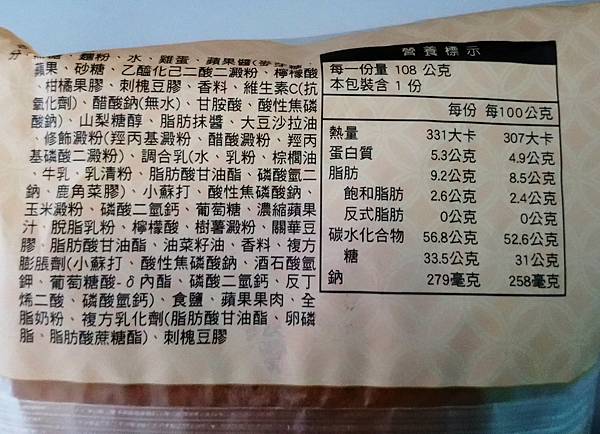 麵粉、水、雞蛋、蘋果醬(麥芽糖、
蘋果、砂糖、乙醯化己二酸二澱粉、檸檬酸
、柑橘果膠、刺槐豆膠、香料、維生素C(抗
氧化劑)、醋酸鈉(無水)、甘胺酸、酸性焦磷
酸鈉)、山梨糖醇、脂肪抹醬、大豆沙拉油
、修飾澱粉(羥丙基澱粉、醋酸澱粉、羥丙
基磷酸二澱粉)、調合乳(水、乳粉、棕櫚油
、牛乳、乳清粉、脂肪酸甘油酯、磷酸氫二
鈉、鹿角菜膠)、小蘇打、酸性焦磷酸鈉、
玉米澱粉、磷酸二氫鈣、葡萄糖、濃縮蘋果
汁、脫脂乳粉、檸檬酸、樹薯澱粉、關華豆
膠、脂肪酸甘油酯、油菜籽油、香料、複方
膨脹劑(小蘇打、酸性焦磷酸鈉、酒石酸氫
鉀、葡萄糖酸-δ內酯、磷酸二氫鈣、反丁
烯二酸、磷酸氫鈣)、食鹽、蘋果果肉、全
脂奶粉、複方乳化劑(脂肪酸甘油酯、卵磷
脂、脂肪酸蔗糖酯)、刺槐豆膠
營養標示
每一份量 108 公克
本包裝含 1 份
每份 每100公克
熱量 331大卡 307大卡
蛋白質 5.3公克 4.9公克
脂肪 9.2公克 8.5公克
飽和脂肪 2.6公克 2.4公克
反式脂肪 0公克 0公克
碳水化合物 56.8公克 52.6公克
糖 33.5公克 31公克
鈉 279毫克 258毫克